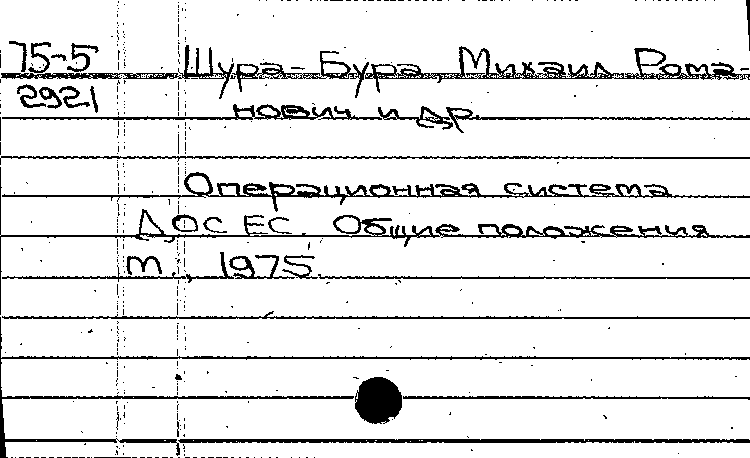 75-5 Шура-Бура, Михаил Рома-
2921 нович и др.
Операционная система
ДОС ЕС. Общие положения
М., 1975.